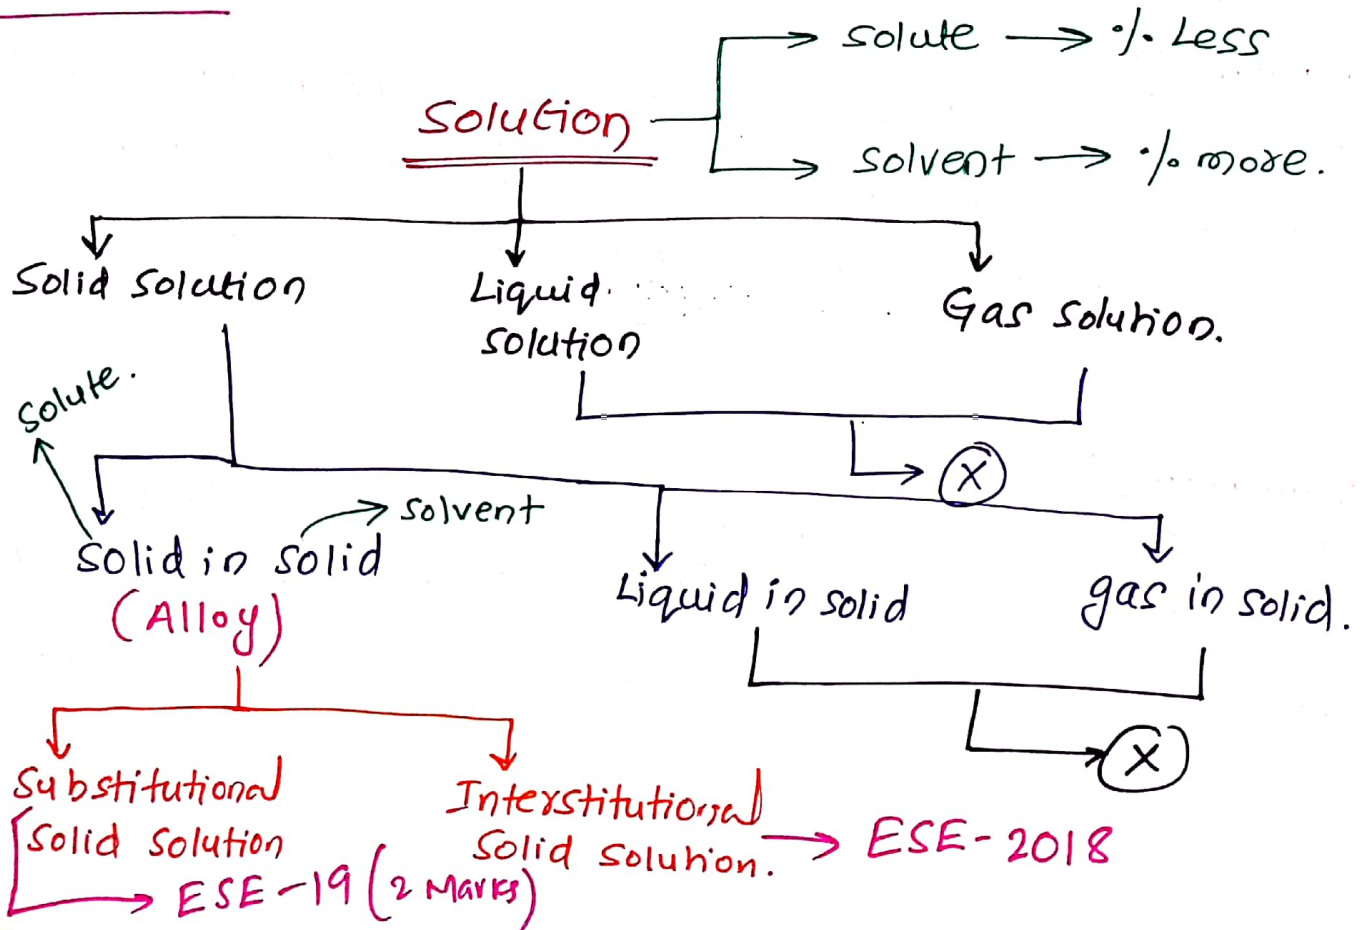 solute → % Less
Solution
solvent → % more.
Solid solution
Liquid solution
Gas solution.
solute.
X
solvent
Solid in solid
(Alloy)
Liquid in solid
gas in solid.
X
Substitutional
Solid solution
Interstitutional
Solid solution.
→ ESE-2018
→ ESE-19 (2 Marks)